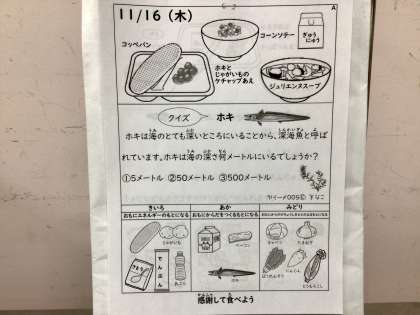 11/16（木）
A
コッペパン
コーンソテー
ぎゅうにゅう
ホキと
じゃがいもの
ケチャップあえ
ジュリエンヌスープ
クイズ
ホキ
ホキは海のとても深いところにいることから、深海魚と呼ば
れています。ホキは海の深さ何メートルにいるでしょうか？
①5メートル ②50メートル ③500メートル
こたえ ③500メートル
きいろ
あか
みどり
おもにエネルギーのもとになる
おもにからだをつくるもとになる
じゃがいも
でんぷん
あぶら
ベーコン
ホキ
キャベツ
たまねぎ
にんじん
とうもろこし
感謝して食べよう